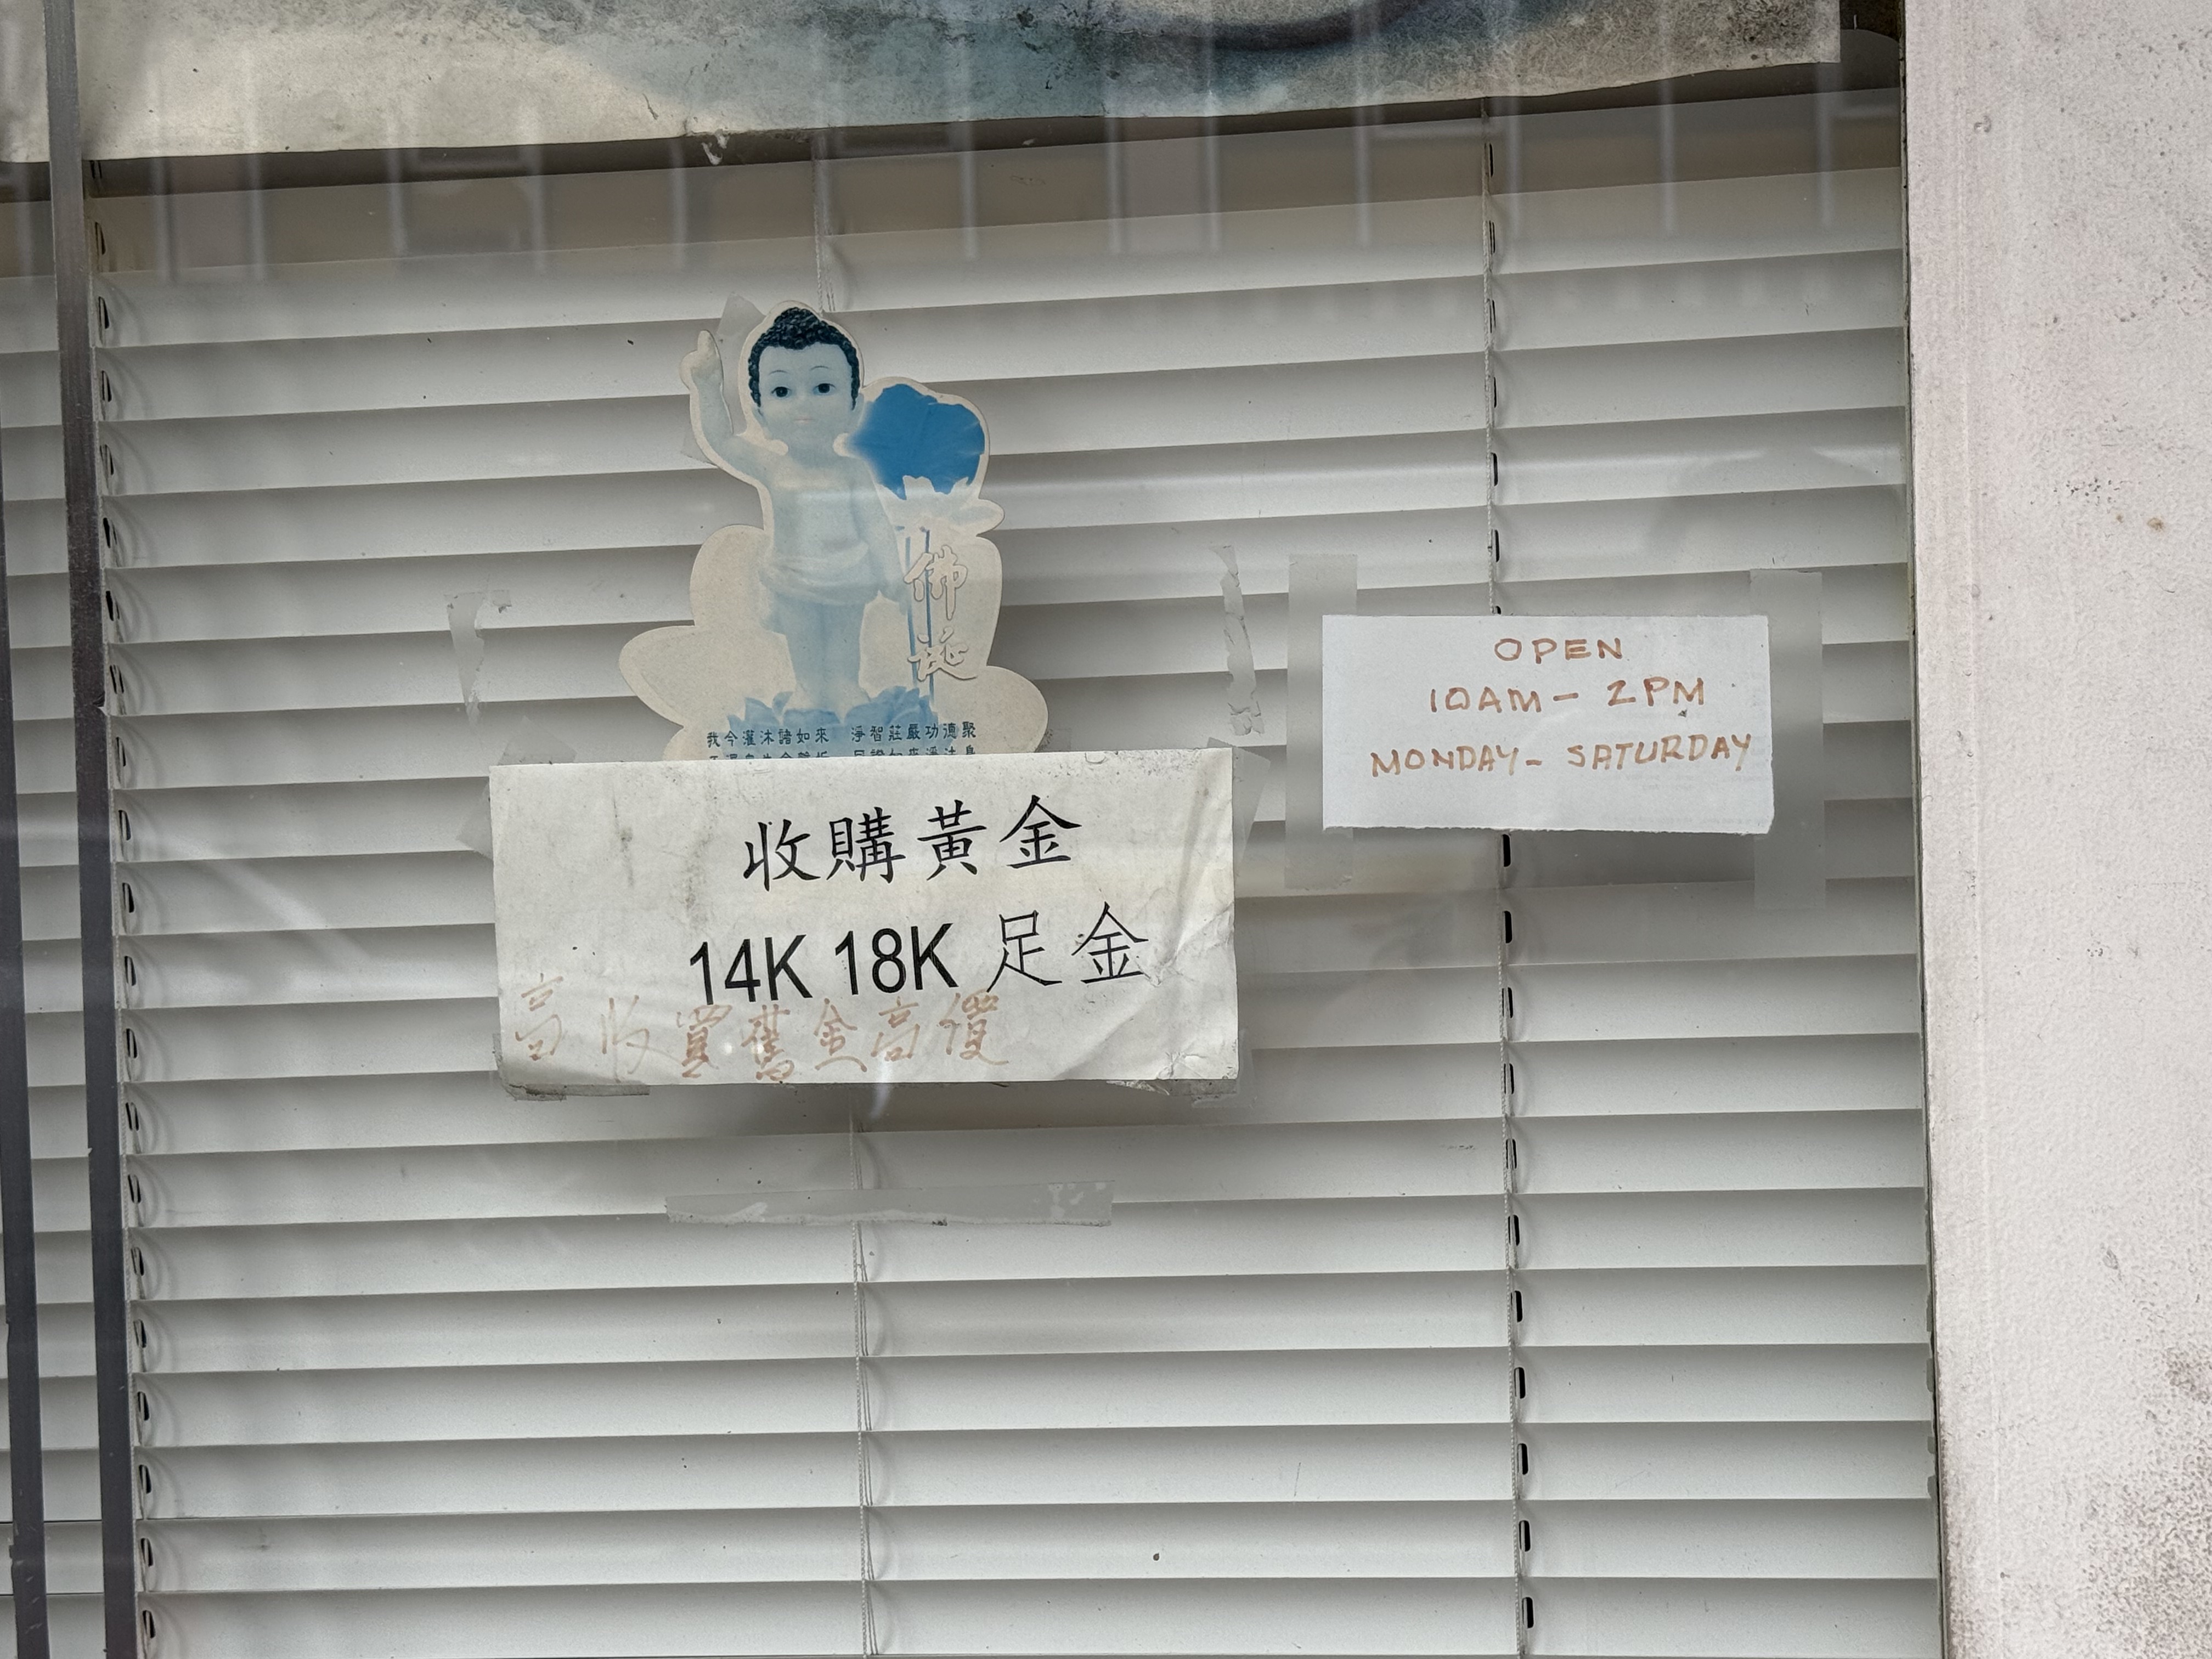 佛
誕
我今灌沐諸如來 淨智莊嚴功德聚
收購黃金
14K 18K 足金
高 收買舊金高價
OPEN
10AM - 2PM
MONDAY - SATURDAY